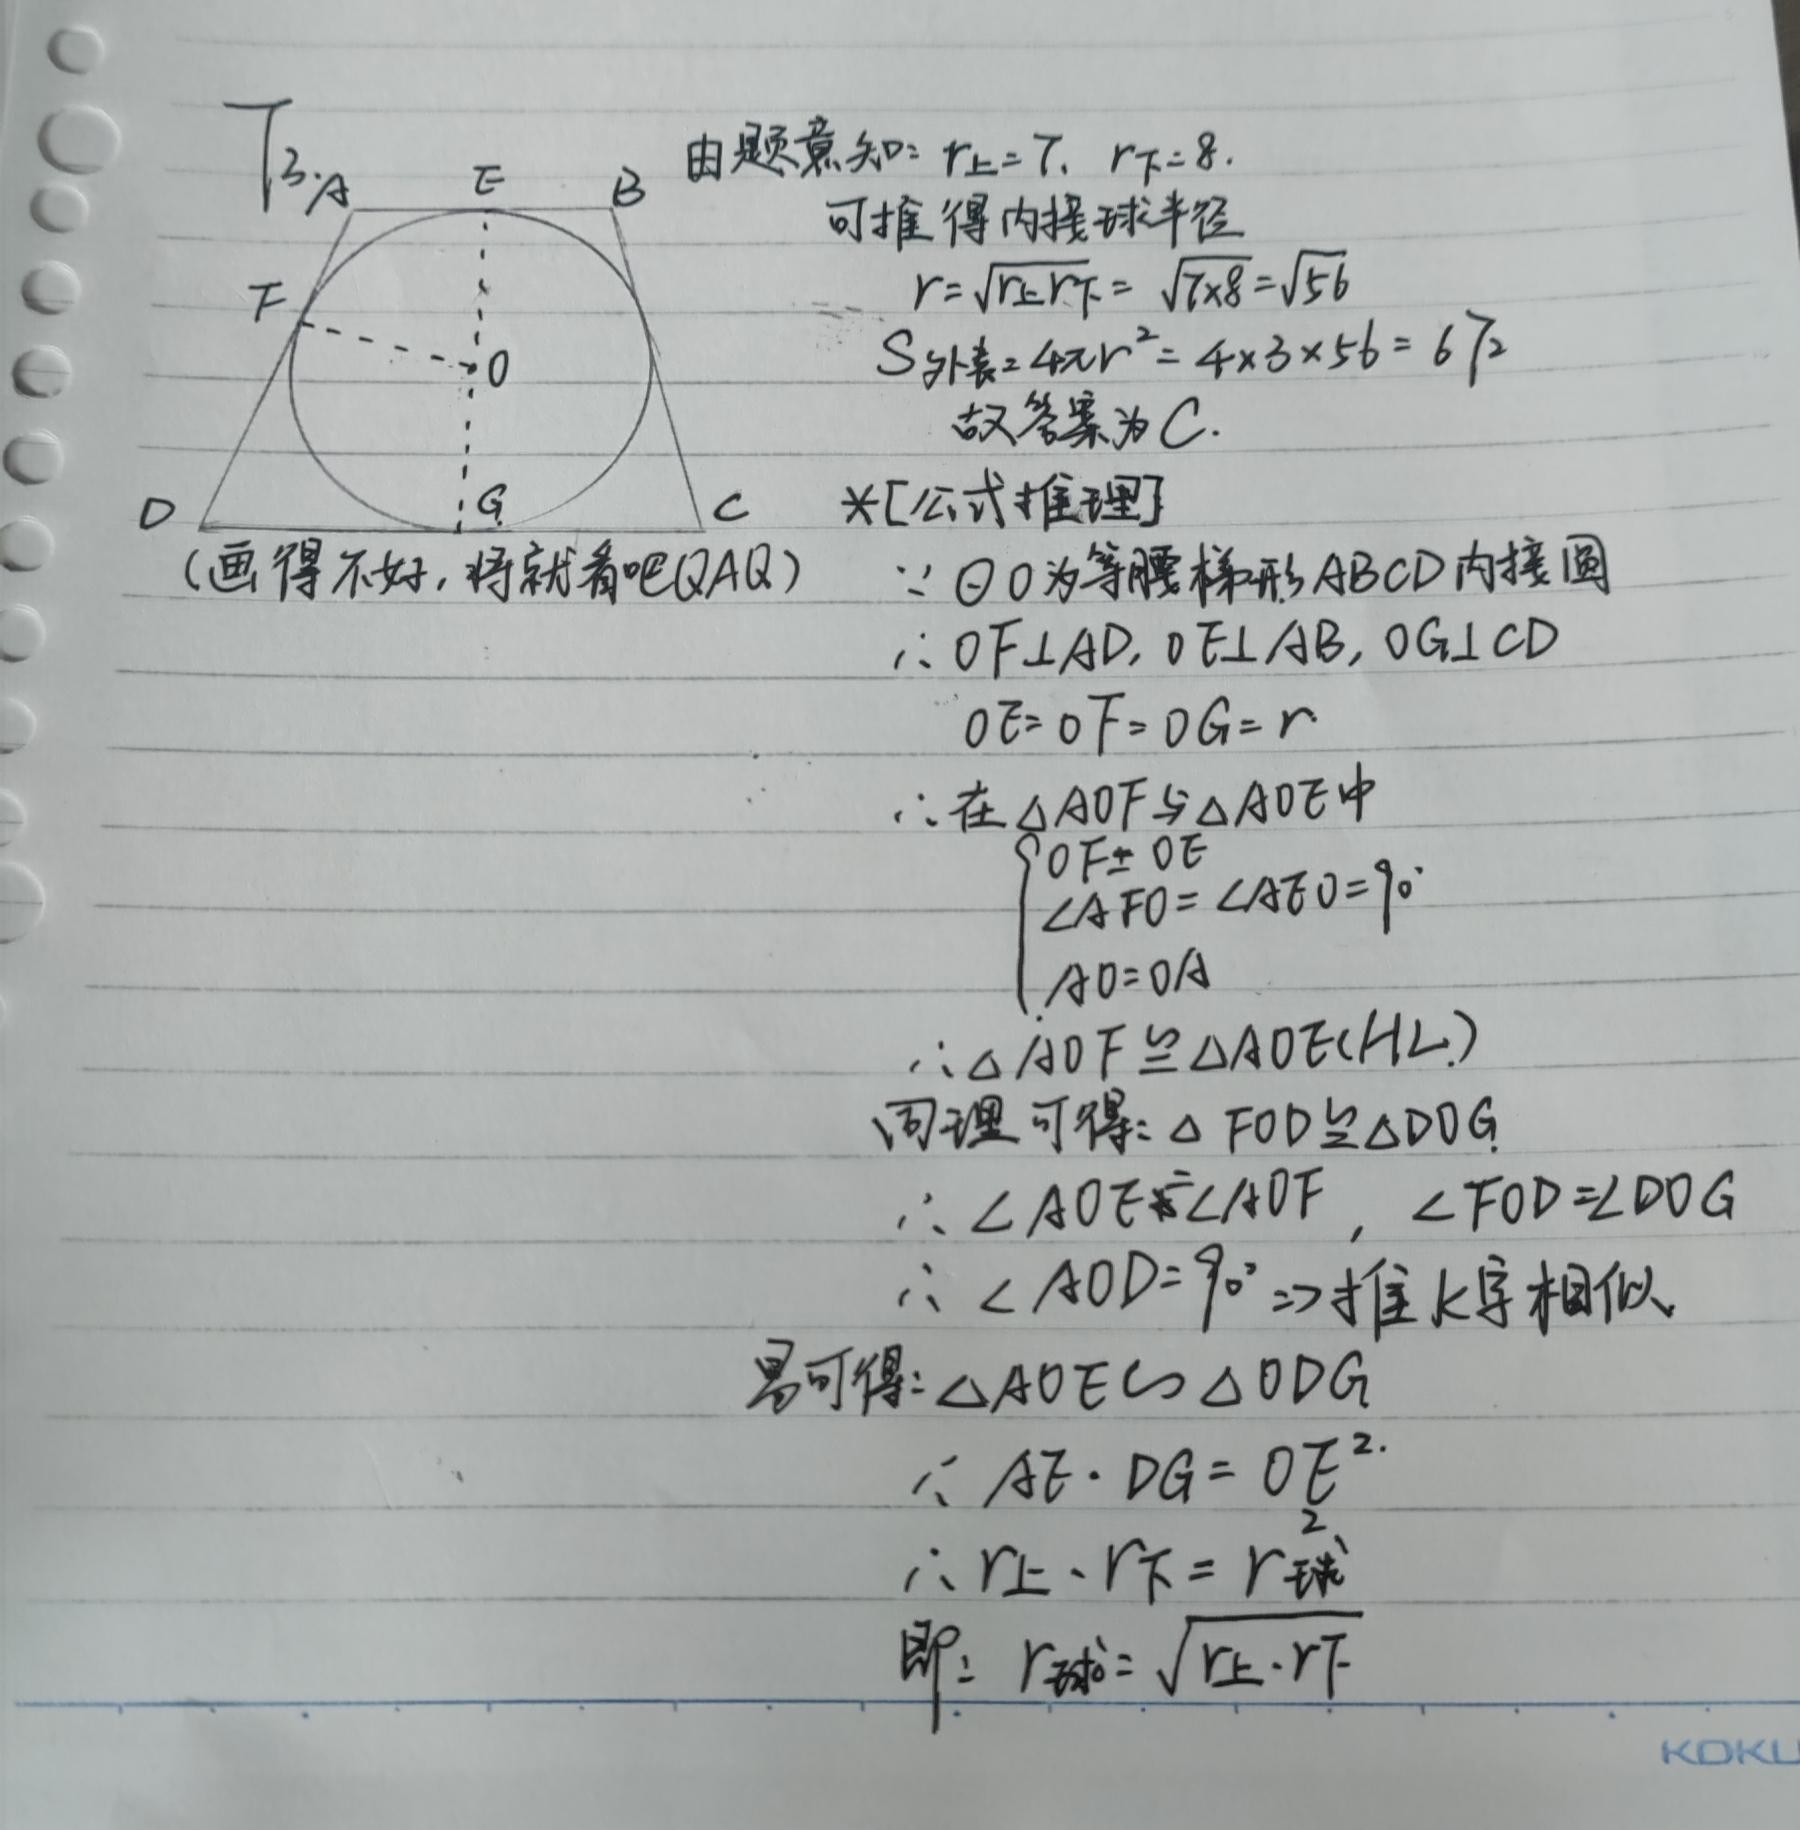 T3.
A E B
F
O
D G C
(画得不好,将就看吧QAQ)
由题意知: r上=7, r下=8.
可推得内接球半径
r=√r上r下=√7×8=√56
S外表=4πr²=4×3×56=672
故答案为C.
*[公式推理]
∵ ⊙O为等腰梯形ABCD内接圆
∴ OF⊥AD, OE⊥AB, OG⊥CD
OE=OF=OG=r.
∴在△AOF与△AOE中
OF=OE
∠AFO=∠AEO=90°
AO=OA
∴△AOF≌△AOE(HL)
同理可得:△FOD≌△DOG
∴∠AOE=∠AOF, ∠FOD=∠DOG
∴∠AOD=90°=>推K字相似
易可得:△AOE∽△ODG
∴ AE·DG=OE².
∴ r上·r下=r球²
即: r球=√r上·r下
KOKU